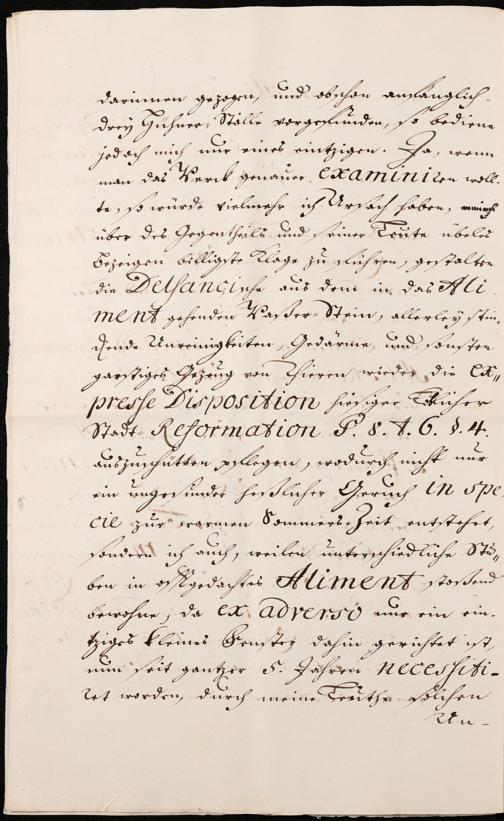 darinnen gezogen, und obschon anfänglich
drey Hühner-Ställe vorgefunden, so bediene
jedoch mich nur eines eintzigen. Ja, wenn
man das Werck genauer examiniren woll-
te, so würde vielmehr ich Ursach haben,
über des Gegentheils und seiner Leute übeles
bezeigen billigste Klage zu führen, gestalten
die Delsancische aus dem in das Ali
ment gehenden Waßer-Stein, allerley stin-
ckende Unreinigkeiten, Gedärme, und sonsten
garstiges Gezeug von Thieren wieder die ex-
presse Disposition hiesiger Löblicher
Stadt-Reformation P. 8. t. 6. §. 4.
auszuschütten pflegen, wodurch nicht nur
ein ungesunder heßlicher Geruch in spe
cie zur warmen Sommers-Zeit entstehet,
sondern ich auch, weilen unterschiedliche Stu-
ben in offtgedachtes Aliment stoßend
bewohne, da ex adverso nur ein ein-
tziges kleines Fenster dahin gerichtet ist,
nun seit gantzer 5. Jahren necessiti-
ret worden, durch meine Leuthe solchen
Un-